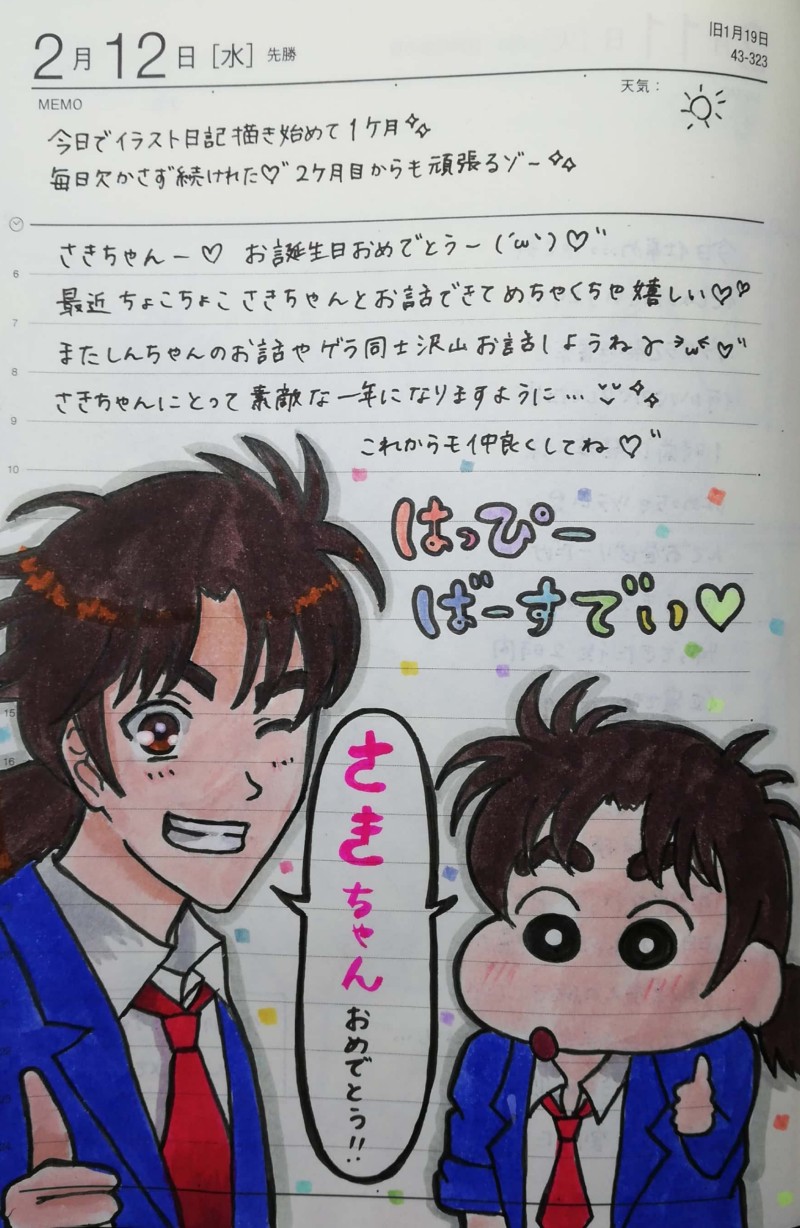 2月12日[水] 先勝
旧1月19日
43-323
天気：
MEMO
今日でイラスト日記描き始めて1ケ月
毎日欠かさず続けれた♡ 2ケ月目からも頑張るゾー
さきちゃんー♡ お誕生日おめでとうー(´ω`)♡
最近ちょこちょこさきちゃんとお話できてめちゃくちゃ嬉しい♡♡
またしんちゃんのお話やゲラ同士沢山お話しようね ♡
さきちゃんにとって素敵な一年になりますように…
これからモ仲良くしてね♡
6
7
8
9
10
15
16
はっぴー
ばーすでぃ♡
さきちゃん おめでとう!!